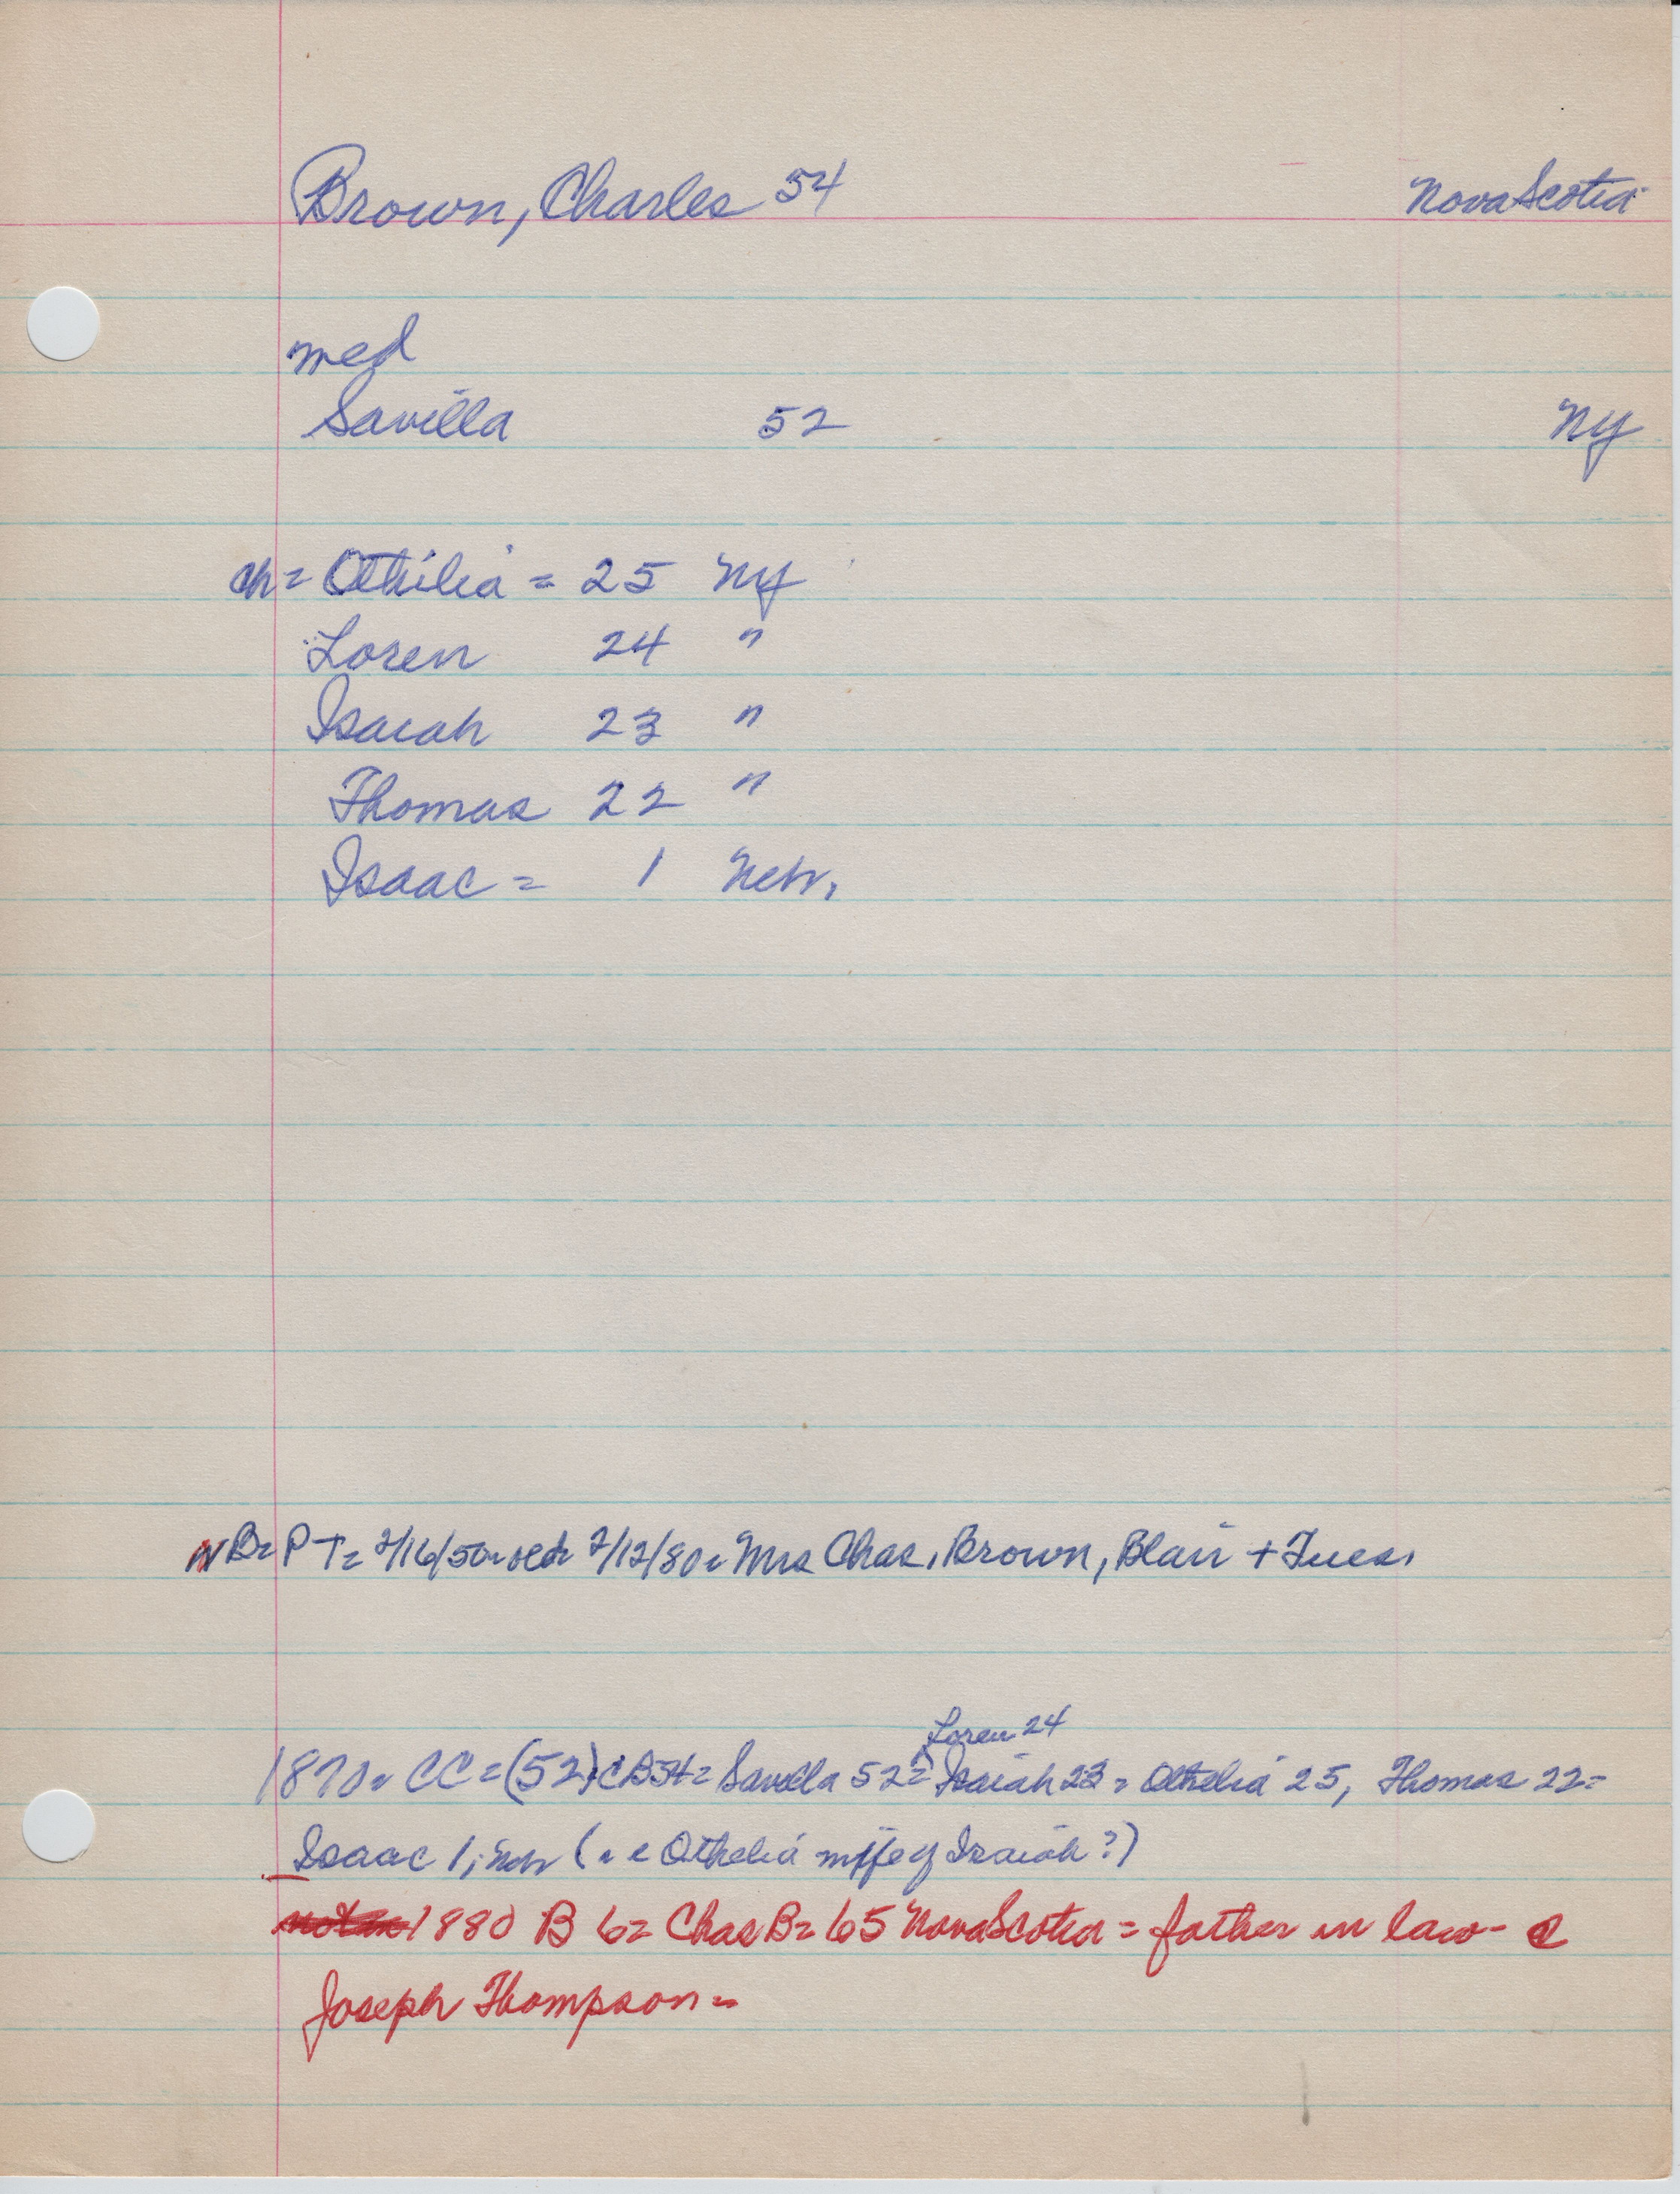 Brown, Charles 54 Nova Scotia
med
Savilla 52 NY
ch = Othilia = 25 NY
Loren 24 "
Isaiah 23 "
Thomas 22 "
Isaac = 1 Nebr.
NB = PT = 2/16/50 = 2/12/80 = Mrs Chas. Brown, Blair + Tues.
Loren 24
1870 = CC = (52) CB54 = Savilla 52 = Isaiah 23 = Othelia 25, Thomas 22 =
Isaac 1, Nebr ( Othelia of Isaiah?)
1880 B 6 = Chas B = 65 Nova Scotia = father in law - c
Joseph Thompson =